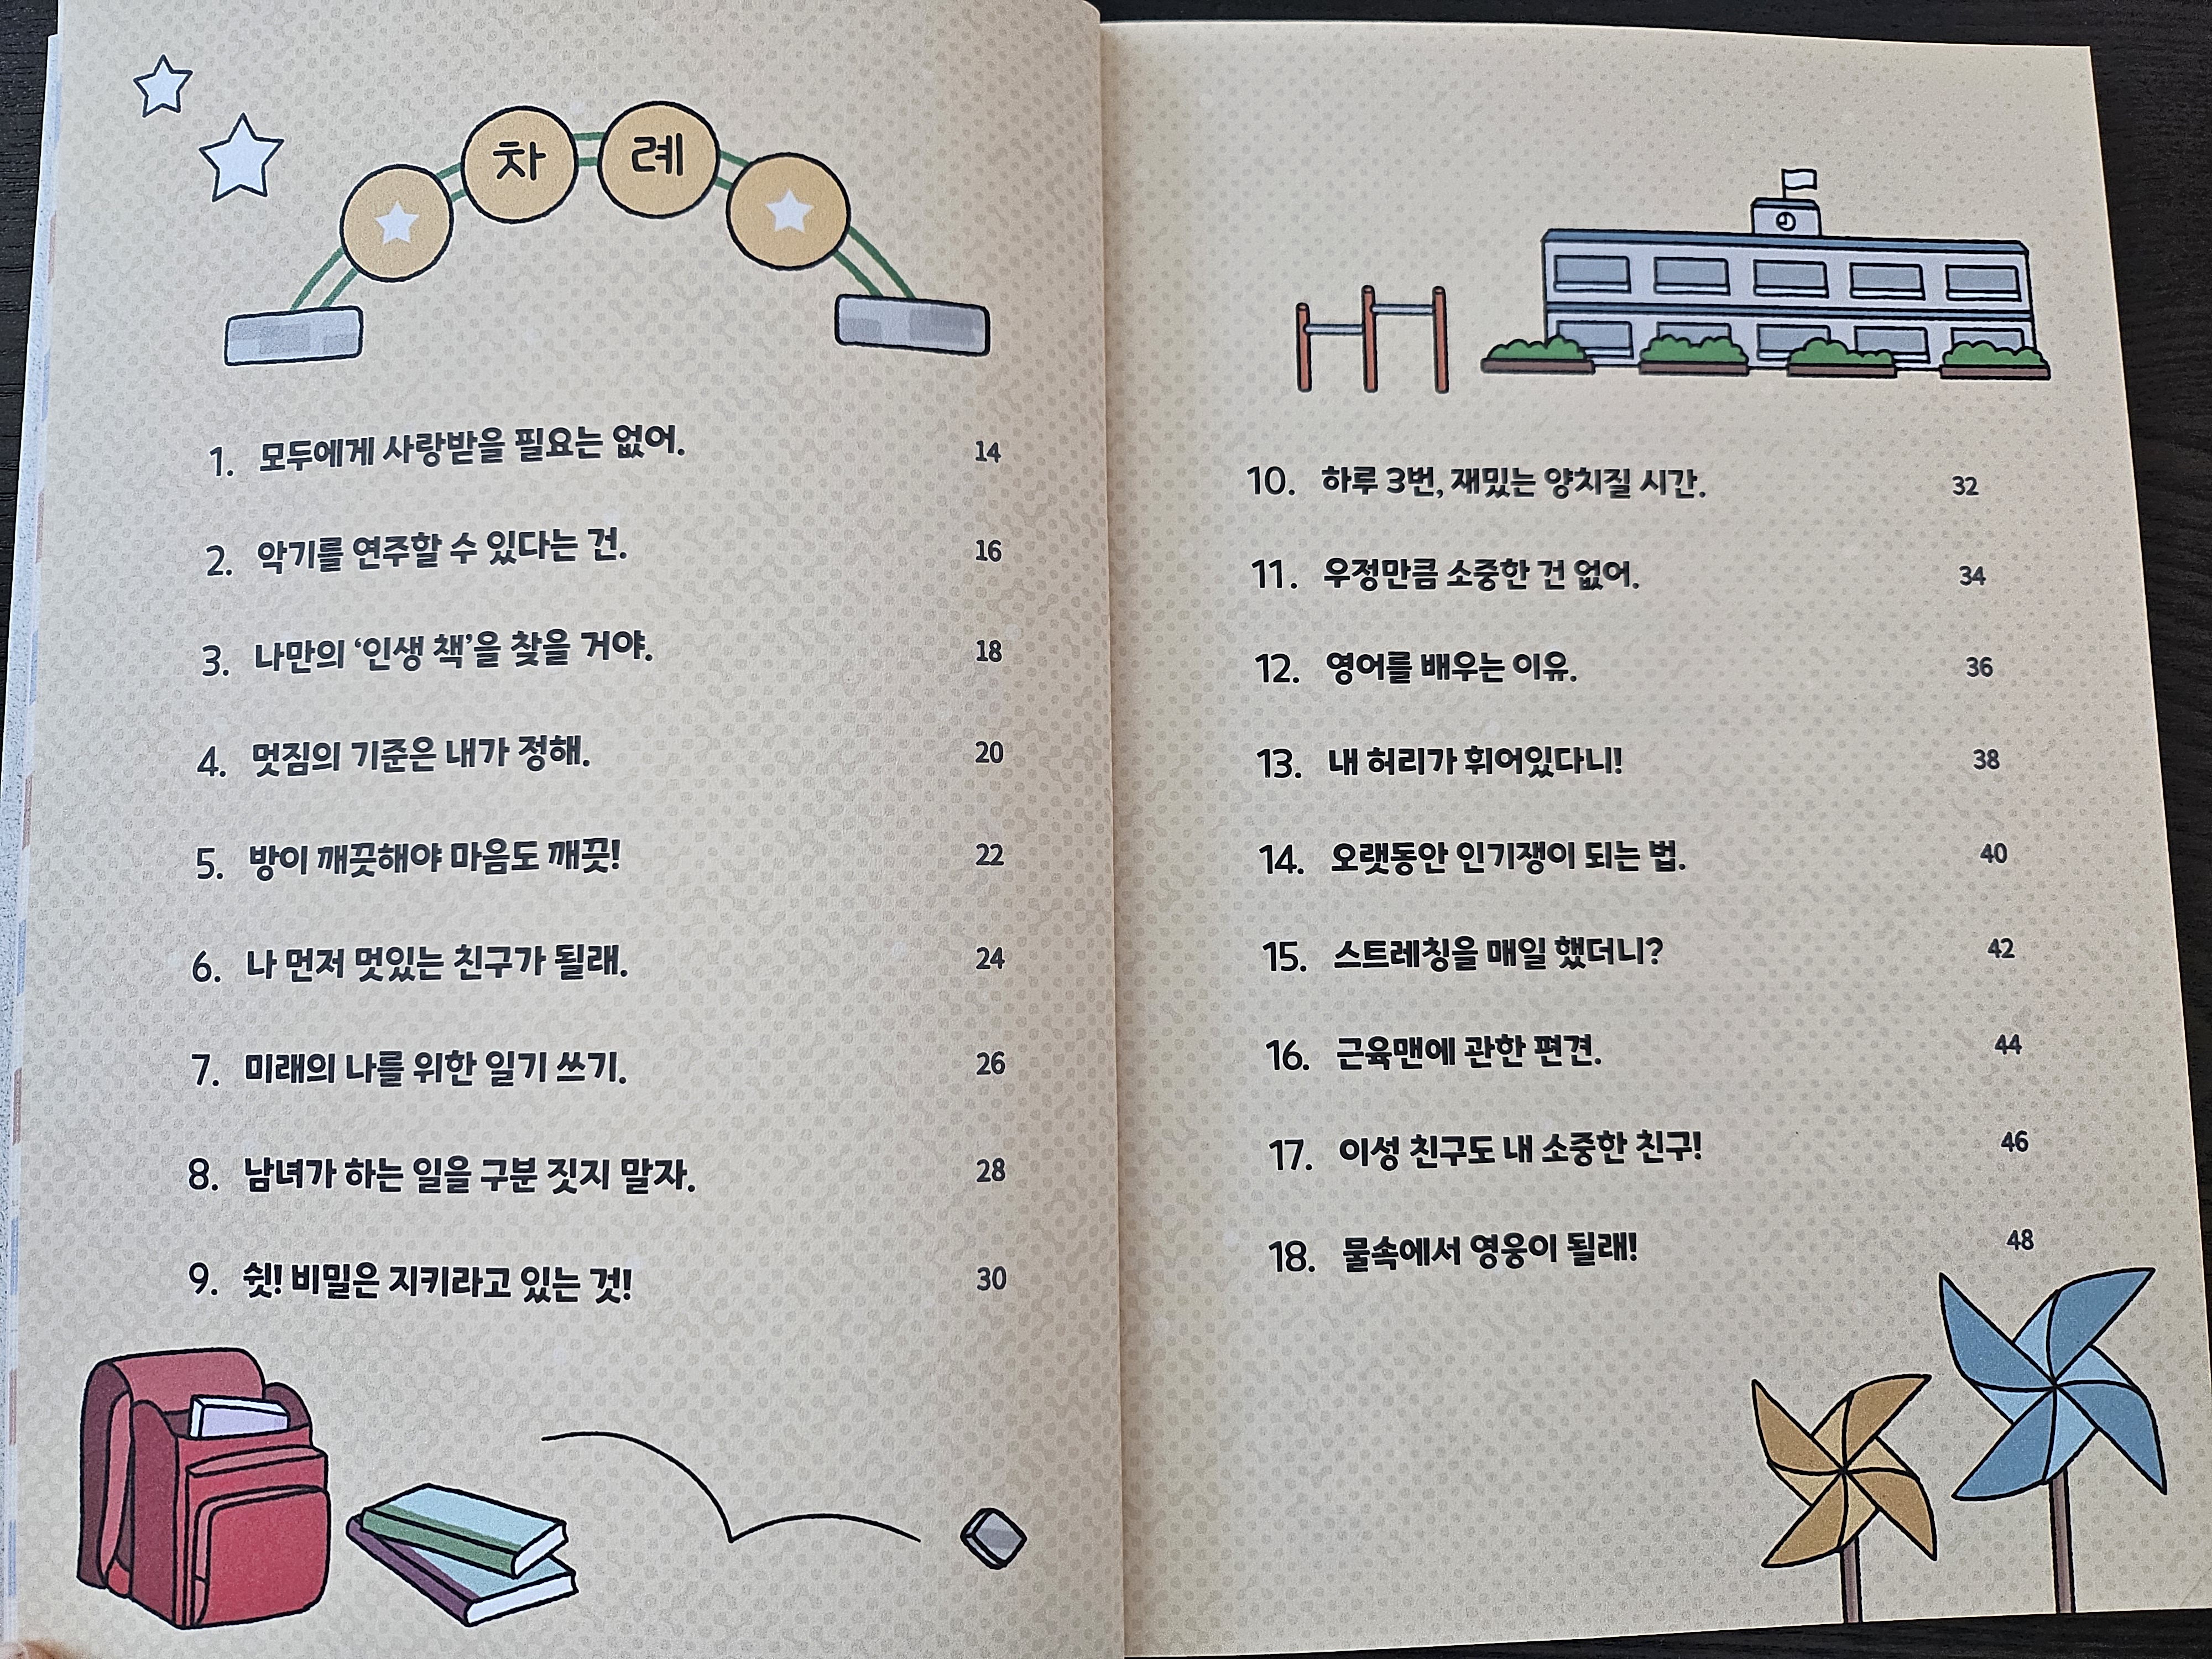 차례
1. 모두에게 사랑받을 필요는 없어. 14
2. 악기를 연주할 수 있다는 건. 16
3. 나만의 ‘인생 책’을 찾을 거야. 18
4. 멋짐의 기준은 내가 정해. 20
5. 방이 깨끗해야 마음도 깨끗! 22
6. 나 먼저 멋있는 친구가 될래. 24
7. 미래의 나를 위한 일기 쓰기. 26
8. 남녀가 하는 일을 구분 짓지 말자. 28
9. 쉿! 비밀은 지키라고 있는 것! 30
10. 하루 3번, 재밌는 양치질 시간. 32
11. 우정만큼 소중한 건 없어. 34
12. 영어를 배우는 이유. 36
13. 내 허리가 휘어있다니! 38
14. 오랫동안 인기쟁이 되는 법. 40
15. 스트레칭을 매일 했더니? 42
16. 근육맨에 관한 편견. 44
17. 이성 친구도 내 소중한 친구! 46
18. 물속에서 영웅이 될래! 48